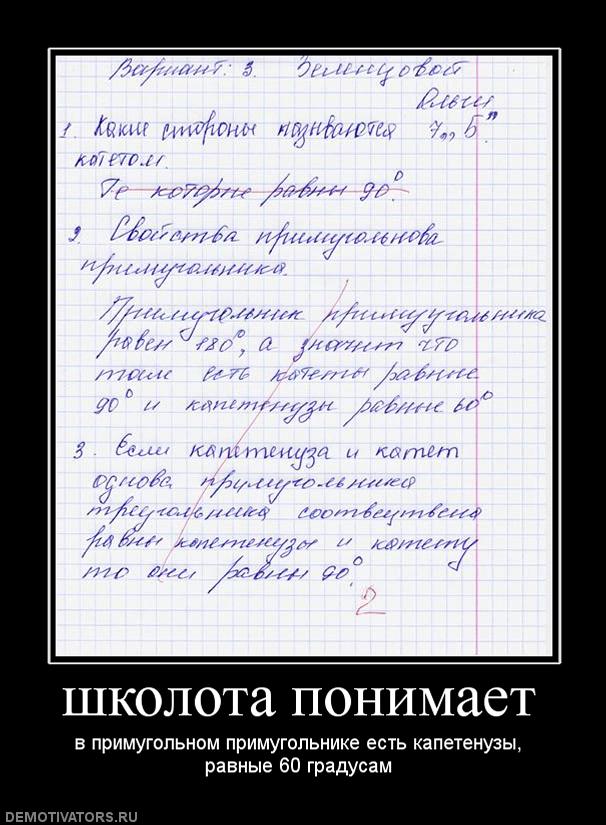 Вариант: 3. Зеленцовой
Ольги
1. Какие стороны называются 7„Б"
катетом.
Те которые равны 90°.
2. Свойства примугольнова
примугольника.
Примугольник примуугольника
равен 180°, а значит что
там есть катеты равные
90° и капетенузы равные 60°
3. Если капетенуза и катет
однова примугольника
треугольника соотвеутвена
равны капетенузы и катету
то они равны 90°.
2
школота понимает
в примугольном примугольнике есть капетенузы,
равные 60 градусам
DEMOTIVATORS.RU